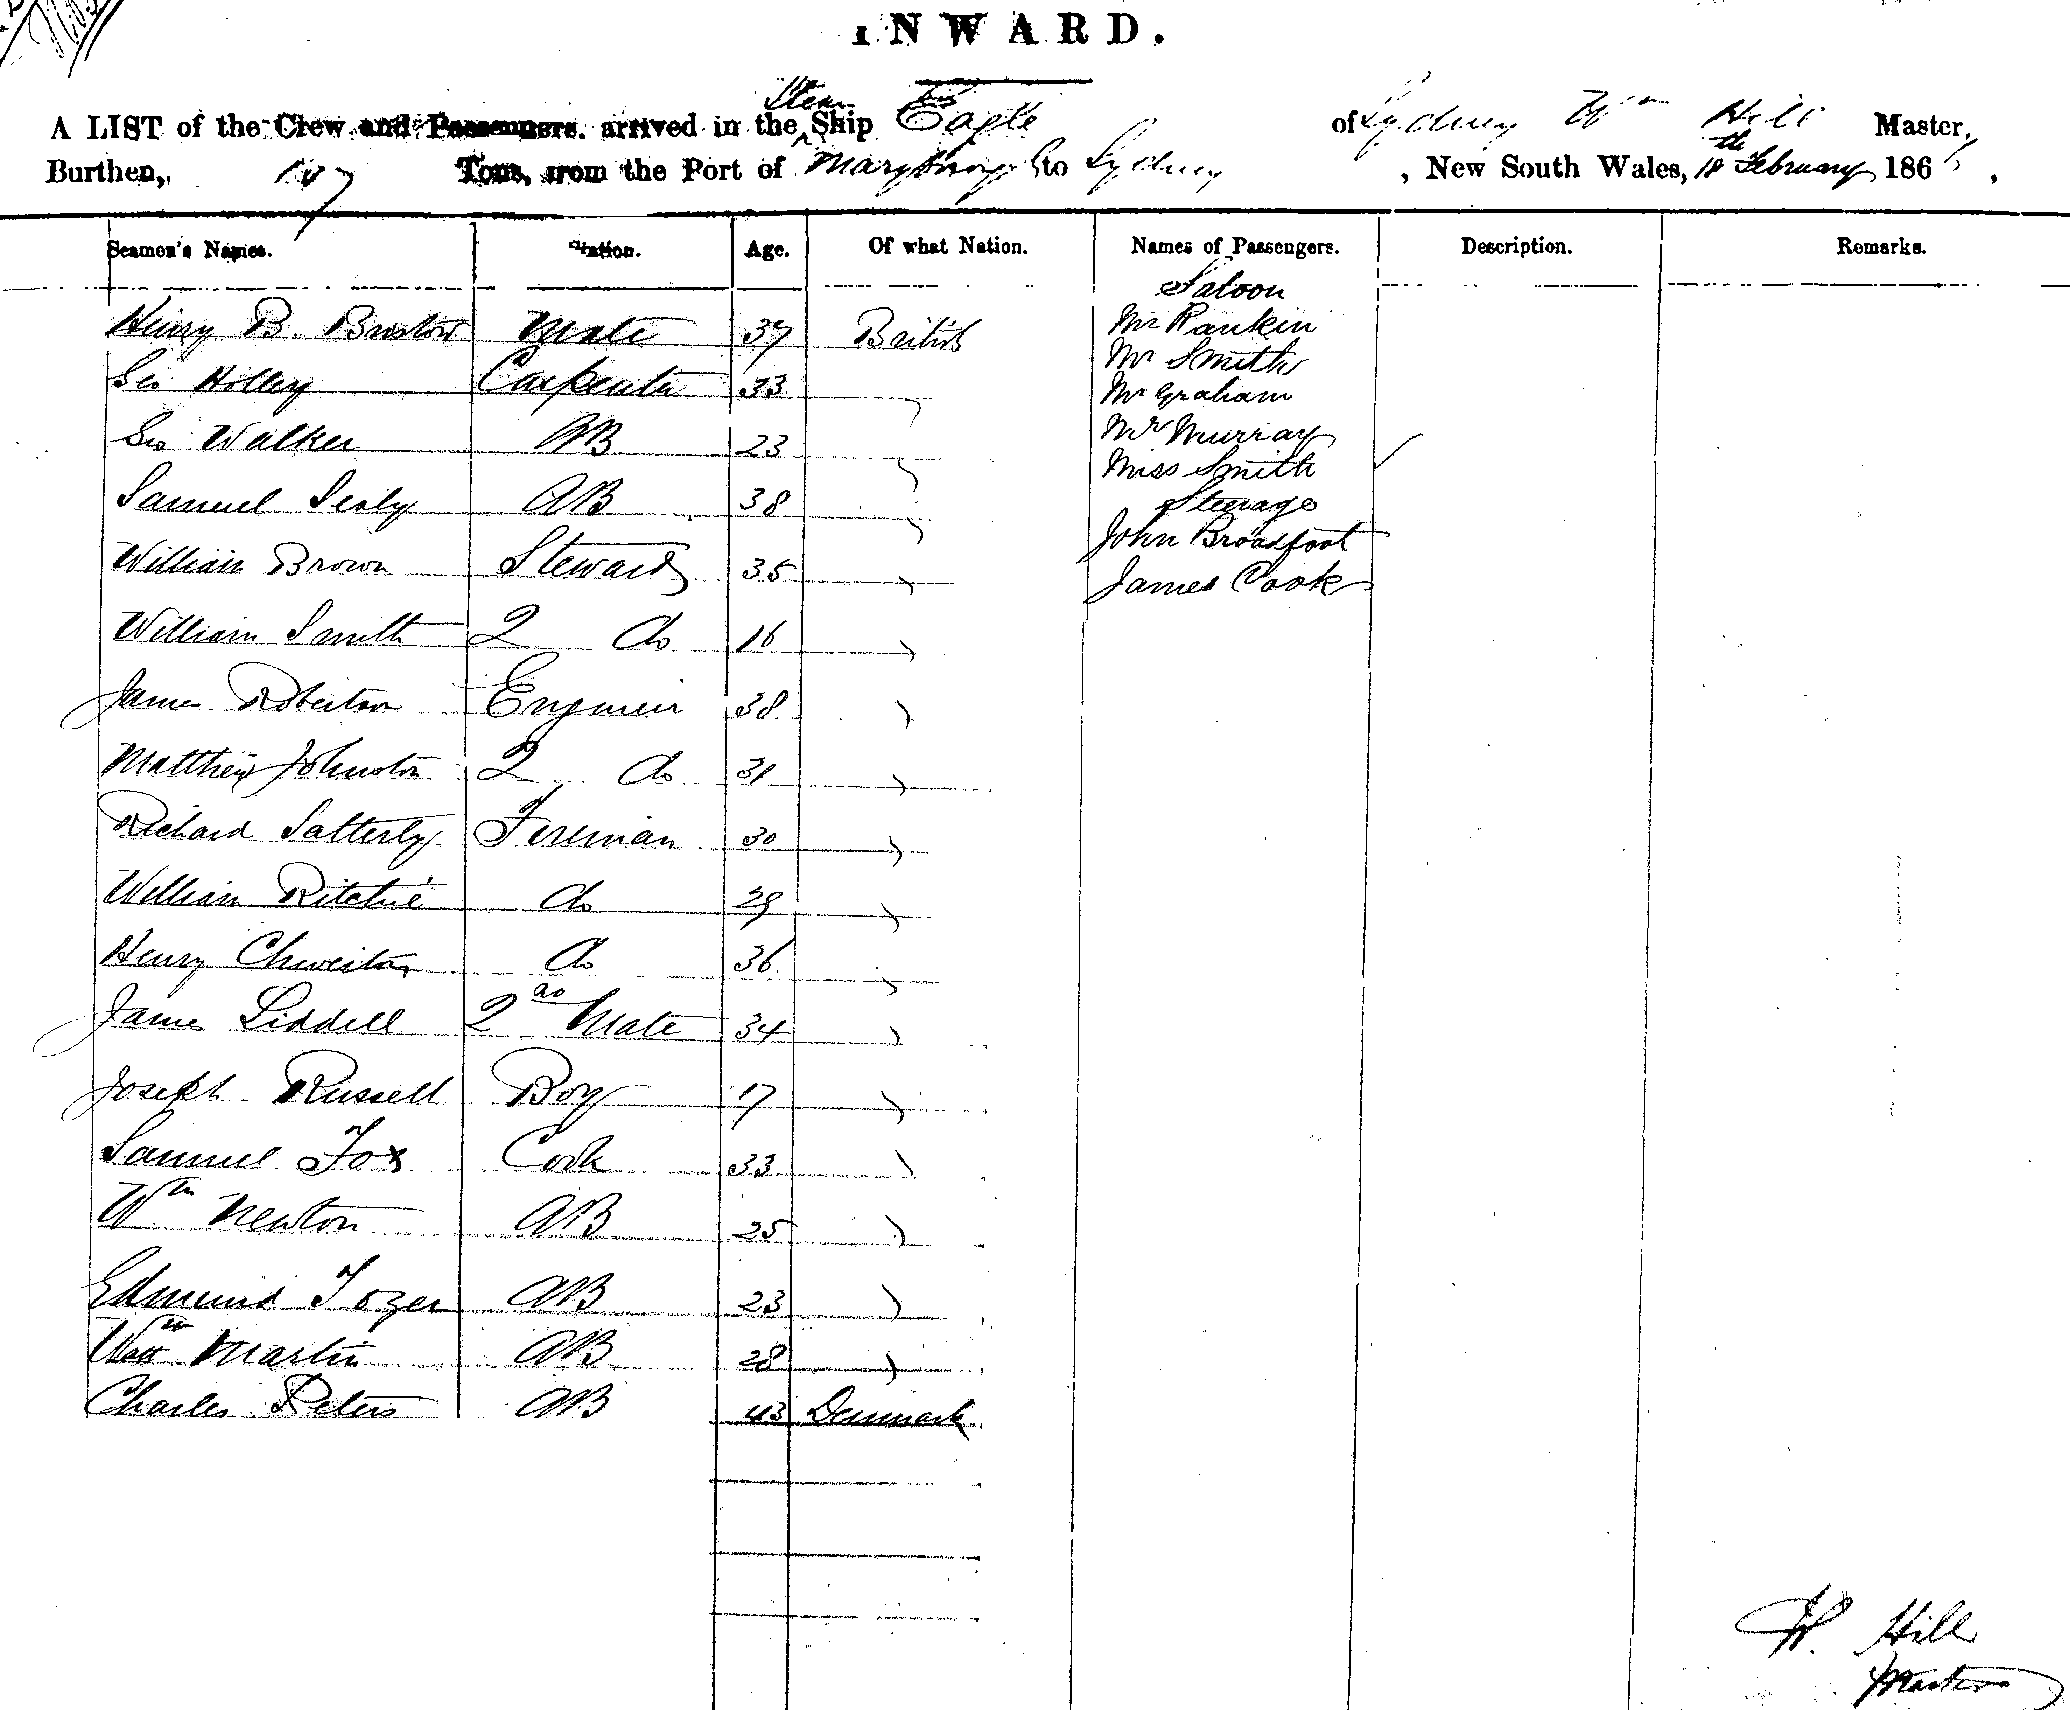 INWARD.
A LIST of the Crew and Passengers arrived in the Steam Ship Eagle of Sydney Wm Hill Master,
Burthen, Tons, from the Port of Maryboro' to Sydney, New South Wales, 18th February 186
Seamen's Names. Station. Age. Of what Nation. Names of Passengers. Description. Remarks.
Saloon
Henry B. Mate 37 British Mr Rankin
Mr Smith
Geo Holley Carpenter 33 Mr Graham
Geo Walker AB 23 Mr Murray
Miss Smith
Samuel Sealy AB 38 Steerage
John Broadfoot
William Brown Steward 35 James Cook
William Smith 2 do 16
James Robertson Engineer 38
Matthew Johnston 2 do 31
Richard Satterly Fireman 30
William Ritchie do 29
Henry do 36
James Liddell 2nd Mate 34
Joseph Russell Boy 17
Samuel Fox Cook 33
Wm Newton AB 25
Edmund Tozer AB 23
Wm Martin AB 28
Charles Peters AB 43 Denmark
W. Hill
Master